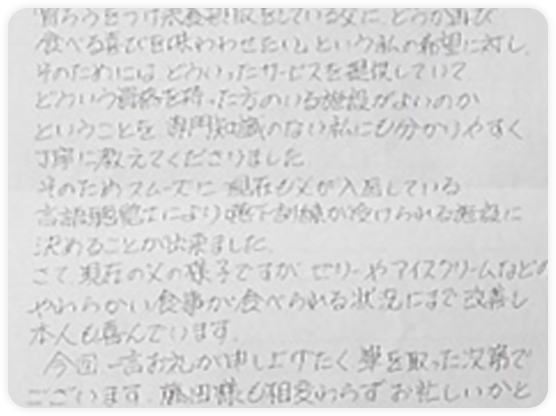 胃ろうをつけ栄養摂取をしている父に、どうか再び
食べる喜びを味わわせたい」という私の希望に対し、
そのためには、どういったサービスを提供していて
どういう資格を持った方のいる施設がよいのか
ということを、専門知識のない私にも分かりやすく
丁寧に教えてくださりました。
そのためスムーズに、現在も父が入居している
言語聴覚士により嚥下訓練が受けられる施設に
決めることが出来ました。
さて、現在の父の様子ですが、ゼリーやアイスクリームなどの
やわらかい食事が食べられる状況にまで改善し
本人も喜んでいます。
今回一言お礼が申し上げたく筆を取った次第で
ございます。藤田様も相変わらずお忙しいかと